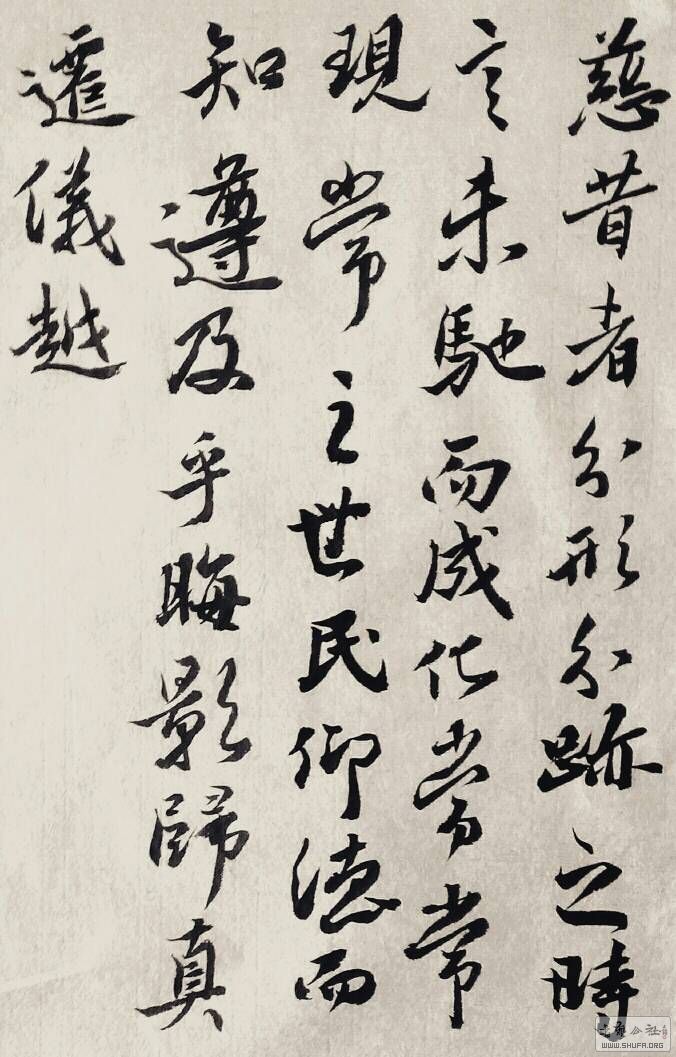 慈昔者分形分跡之時
言未馳而成化當常
現常之世民仰德而
知遵及乎晦影歸真
遷儀越
公社
WWW.SHUFA.ORG